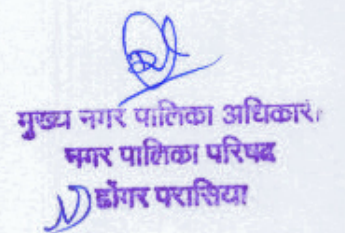 मुख्य नगर पालिका अधिकारी
नगर पालिका परिषद
डोंगर परासिया